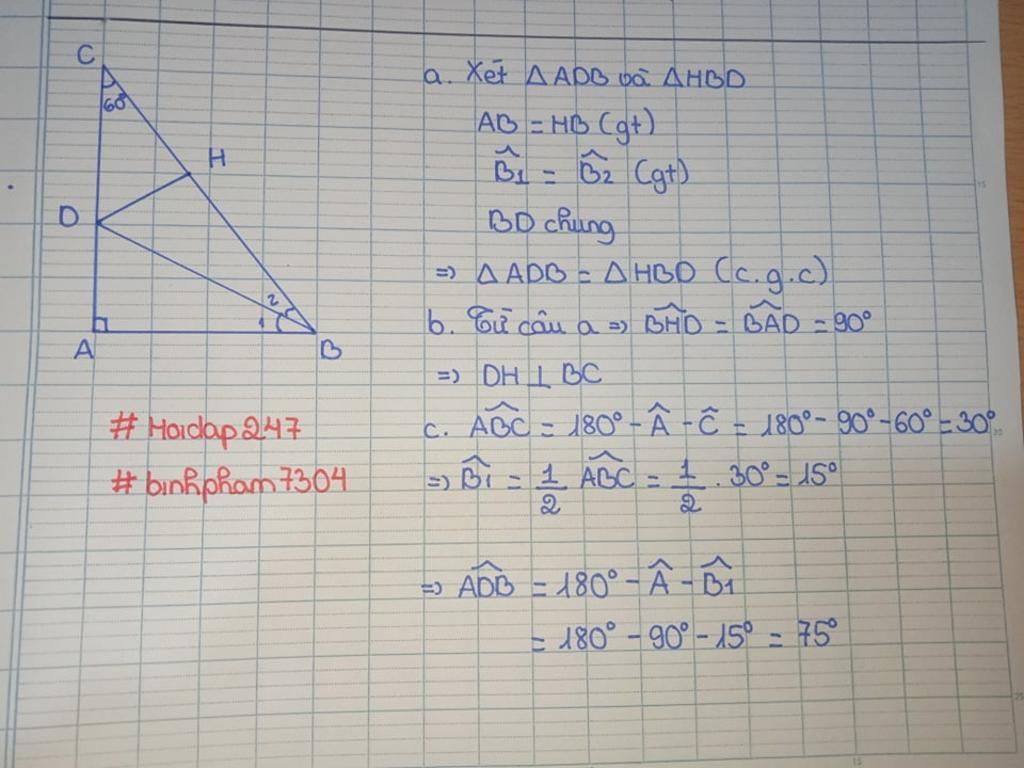 C
60°
H
D
2
1
A
B
# Hoidap247
# binhpham7304
a. Xét △ADB và △HBD
AB = HB (gt)
B̂1 = B̂2 (gt)
BD chung
=> △ADB = △HBD (c.g.c)
b. Từ câu a => BĤD = BÂD = 90°
=> DH ⊥ BC
c. AB̂C = 180° - Â - Ĉ = 180° - 90° - 60° = 30°
=> B̂1 = 1/2 AB̂C = 1/2 . 30° = 15°
=> AD̂B = 180° - Â - B̂1
= 180° - 90° - 15° = 75°
15
20
25
15